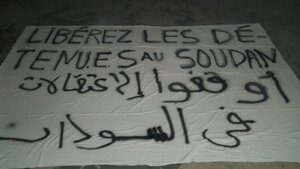 LIBÉREZ LES DÉ-
TENUES AU SOUDAN
أوقفوا الإعتقالات
في السودان